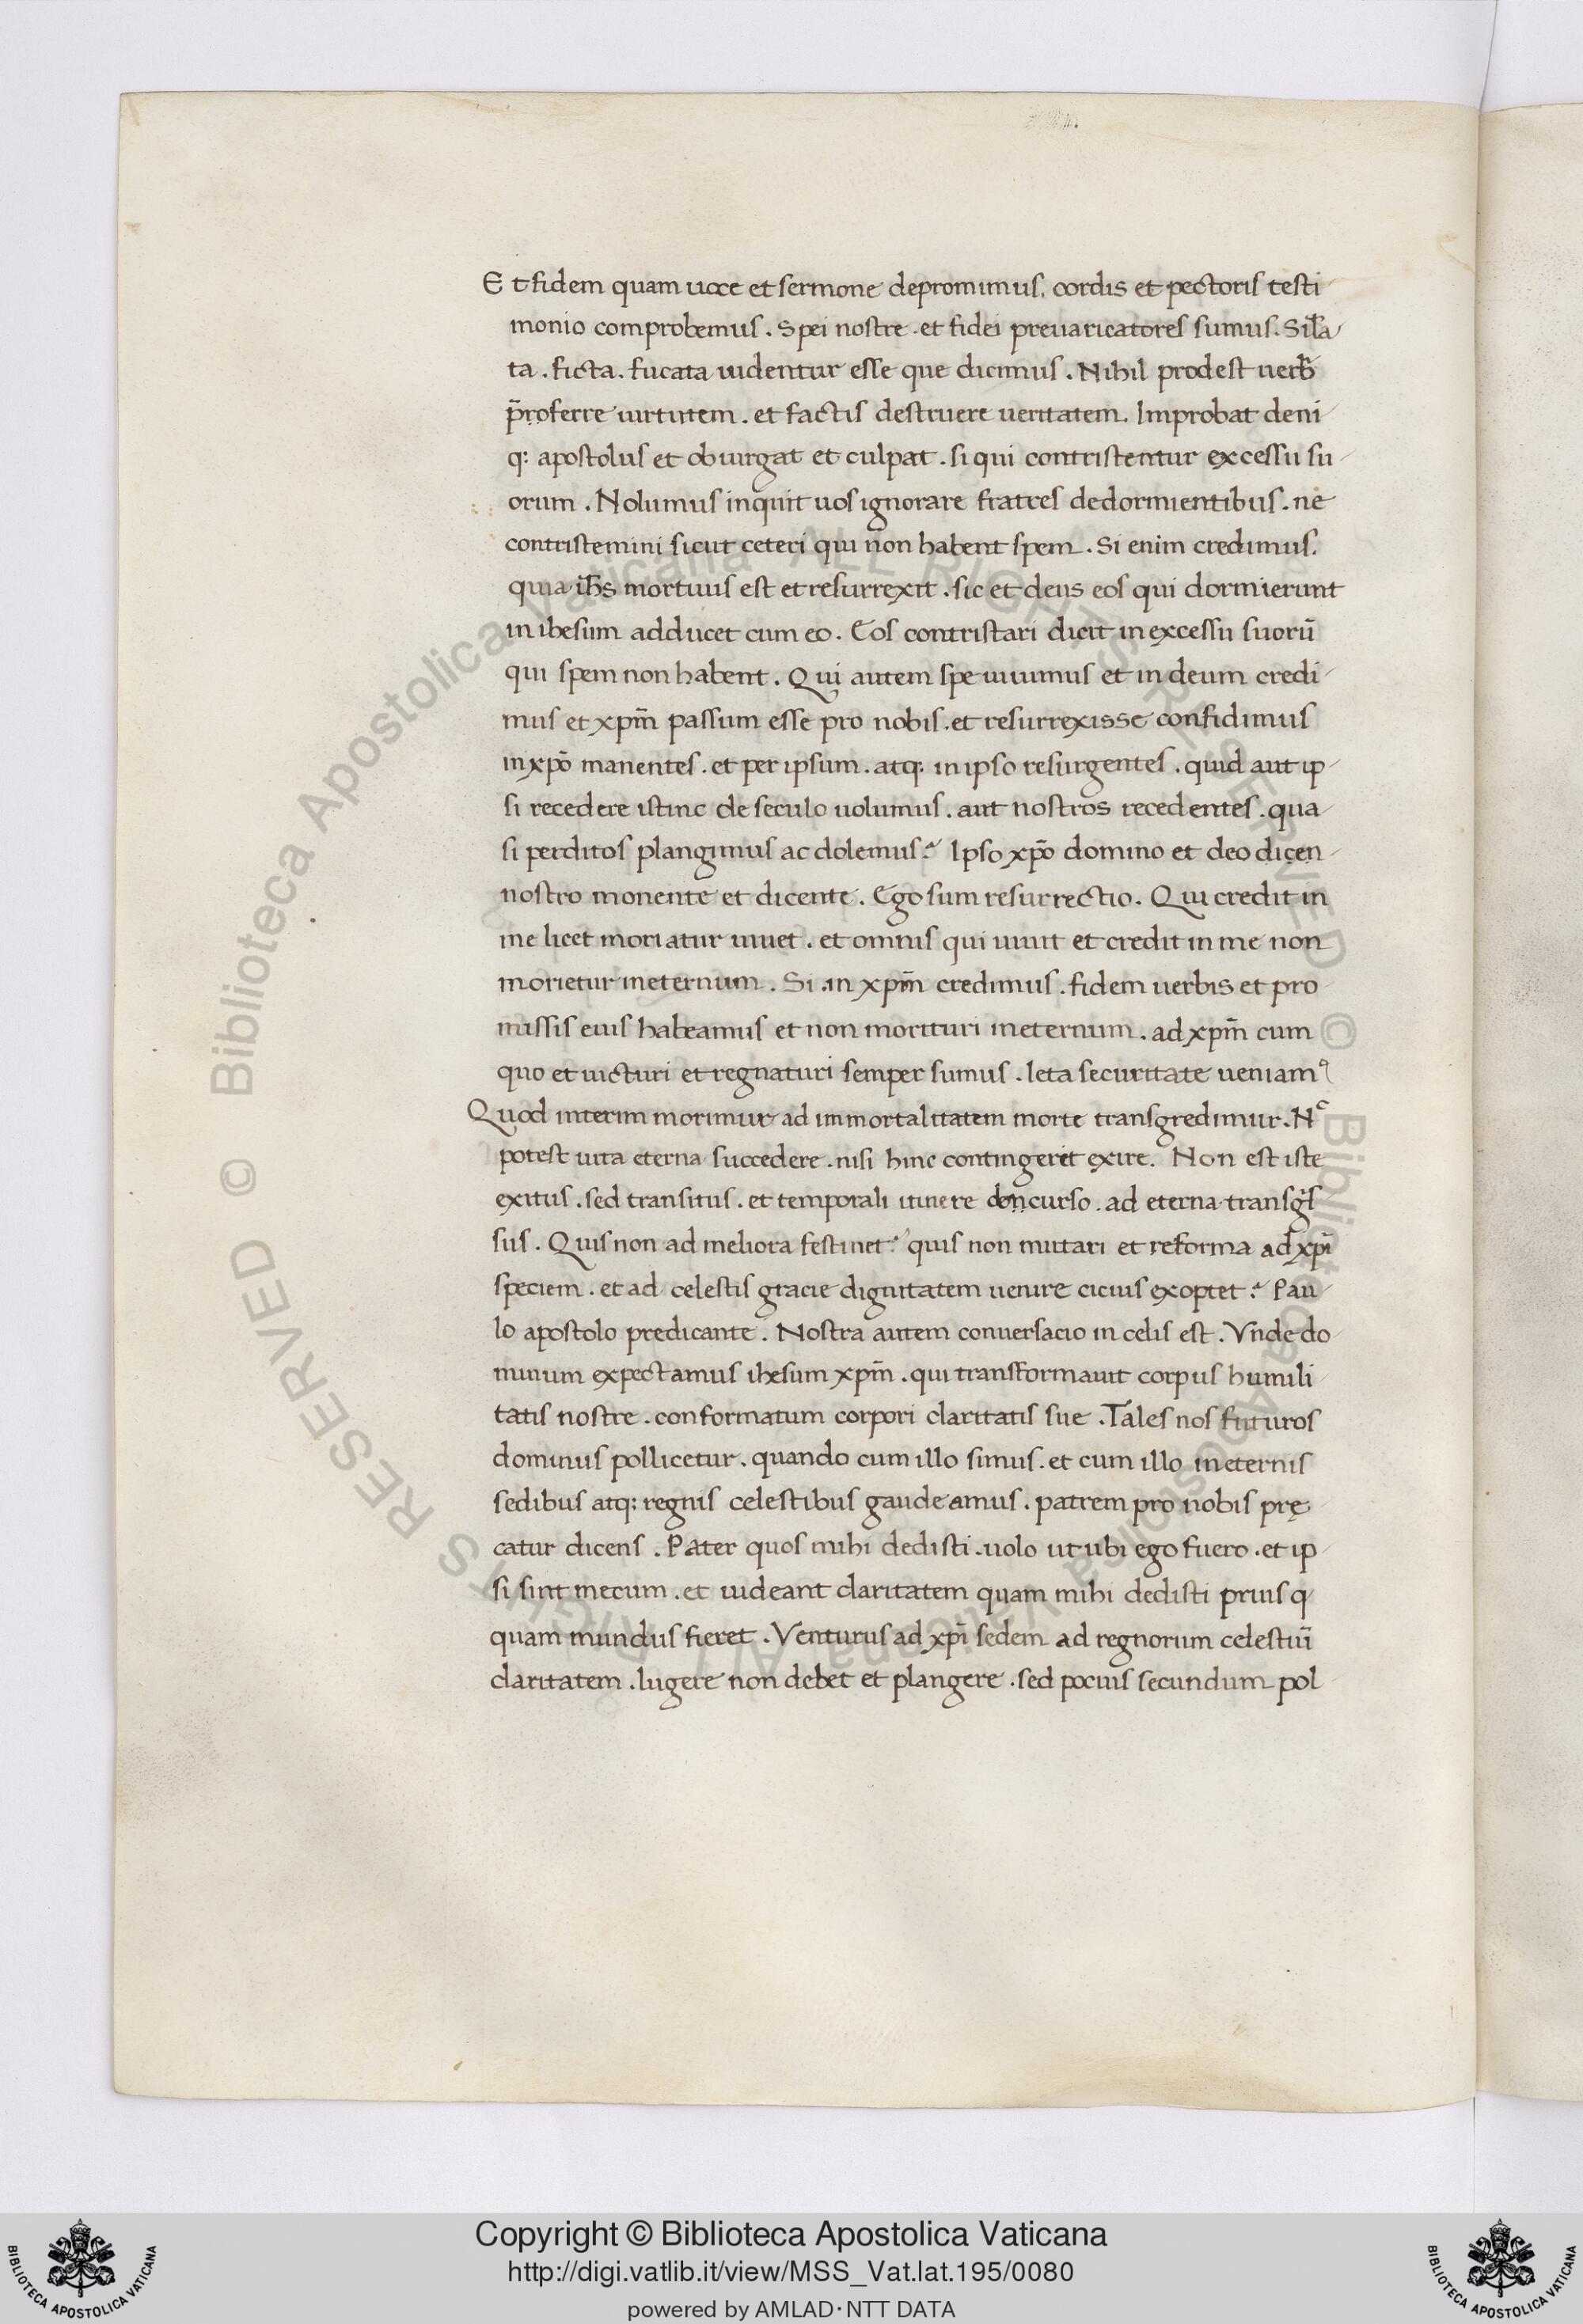 Et fidem quam uoce et sermone depromimus. cordis et pectoris testi
monio comprobemus. Spei nostre. et fidei preuaricatores sumus. Sil̃a
ta. ficta. fucata uidentur esse que dicimus. Nihil prodest uerb̃
p̃roferre uirtutem. et factis destruere ueritatem. Improbat deni
q: apostolus et obuirgat et culpat. si qui contristentur excessu su
orum. Nolumus inquit uos ignorare fratres de dormientibus. ne
contristemini sicut ceteri qui non habent spem. Si enim credimus.
quia ih̃s mortuus est et resurrexit. sic et deus eos qui dormierunt
in ihesum adducet cum eo. Eos contristari dicit in excessu suorũ
qui spem non habent. Qui autem spe uiuimus et in deum credi
mus et xpm̃ passum esse pro nobis. et resurrexisse confidimus
in xpõ manentes. et per ipsum. atq: in ipso resurgentes. quid aut ip
si recedere istinc de seculo uolumus. aut nostros recedentes. qua
si perditos plangimus ac dolemus? Ipso xpõ domino et deo dicen
nostro monente et dicente. Ego sum resurrectio. Qui credit in
me licet moriatur uiuet. et omnis qui uiuit et credit in me non
morietur in eternum. Si in xpm̃ credimus. fidem uerbis et pro
missis eius habeamus et non morituri in eternum. ad xpm̃ cum
quo et uicturi et regnaturi semper sumus. leta securitate ueniamꝰ
Quod interim morimur ad immortalitatem morte transgredimur. Nᶜ
potest uita eterna succedere. nisi hinc contingerit exire. Non est iste
exitus. sed transitus. et temporali itinere doncurso. ad eterna transgͥs
sus. Quis non ad meliora festinet? quis non mutari et reforma ad xpĩ
speciem. et ad celestis gracie dignitatem uenire cicius exoptet? Pau
lo apostolo predicante. Nostra autem conuersacio in celis est. Vnde do
minum expectamus ihesum xpm̃. qui transformauit corpus humili
tatis nostre. conformatum corpori claritatis sue. Tales nos futuros
dominus pollicetur. quando cum illo simus. et cum illo in eternis
sedibus atq: regnis celestibus gaudeamus. patrem pro nobis prę
catur dicens. Pater quos mihi dedisti. uolo ut ubi ego fuero. et ip
si sint mecum. et uideant claritatem quam mihi dedisti prius q
quam mundus fieret. Venturus ad xpĩ sedem ad regnorum celestiũ
claritatem. lugere non debet et plangere. sed pocius secundum pol
© Biblioteca Apostolica Vaticana ALL RIGHTS RESERVED © Biblioteca Apostolica Vaticana ALL RIGHTS RESERVED
Copyright © Biblioteca Apostolica Vaticana
http://digi.vatlib.it/view/MSS_Vat.lat.195/0080
powered by AMLAD·NTT DATA
BIBLIOTECA APOSTOLICA VATICANA
BIBLIOTECA APOSTOLICA VATICANA